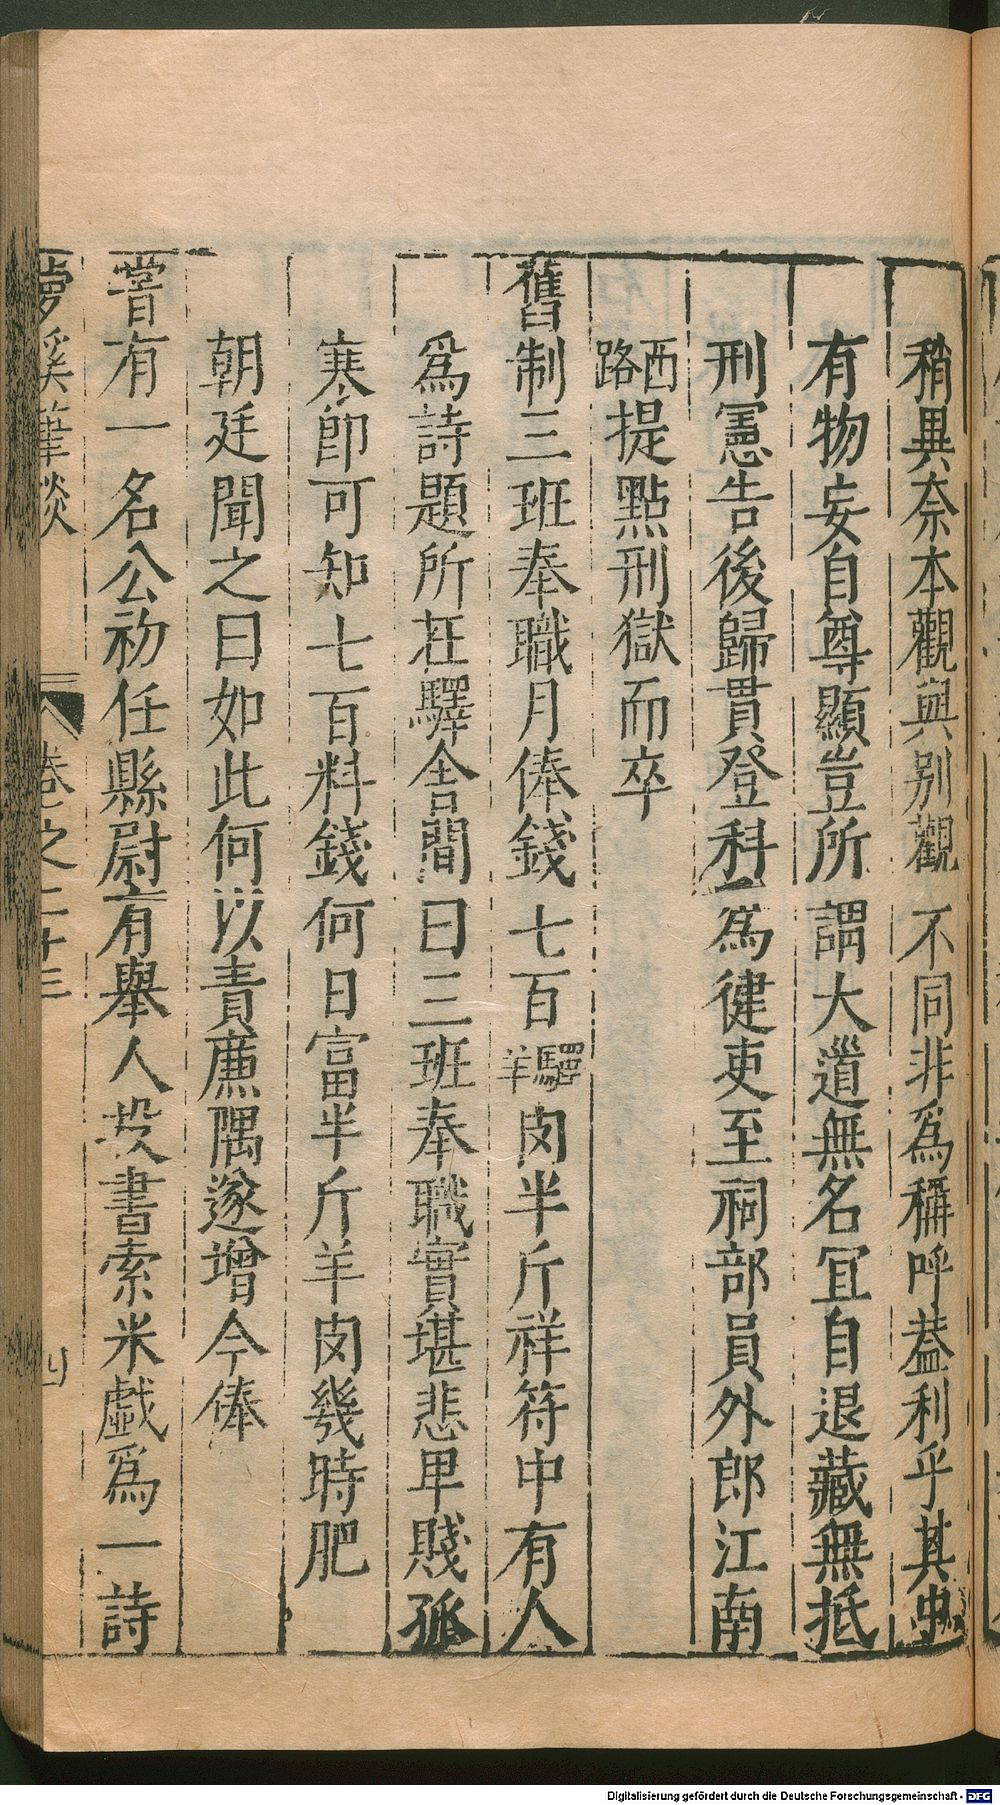 稍異奈本觀與别觀不同非爲稱呼葢利乎其䖝
有物妄自尊顯豈所謂大道無名宜自退藏無抵
刑憲告後歸貫登科爲徤吏至祠部員外郎江南
西路提點刑獄而卒
舊制三班奉職月俸錢七百驛羊肉半斤祥符中有人
爲詩題所在驛舍間曰三班奉職實堪悲卑賤孤
寒即可知七百料錢何日富半斤羊肉幾時肥
朝廷聞之曰如此何以責亷隅遂增今俸
嘗有一名公初任縣尉有舉人投書索米戯爲一詩
夢溪筆談 卷之二十三 四
Digitalisierung gefördert durch die Deutsche Forschungsgemeinschaft - DFG